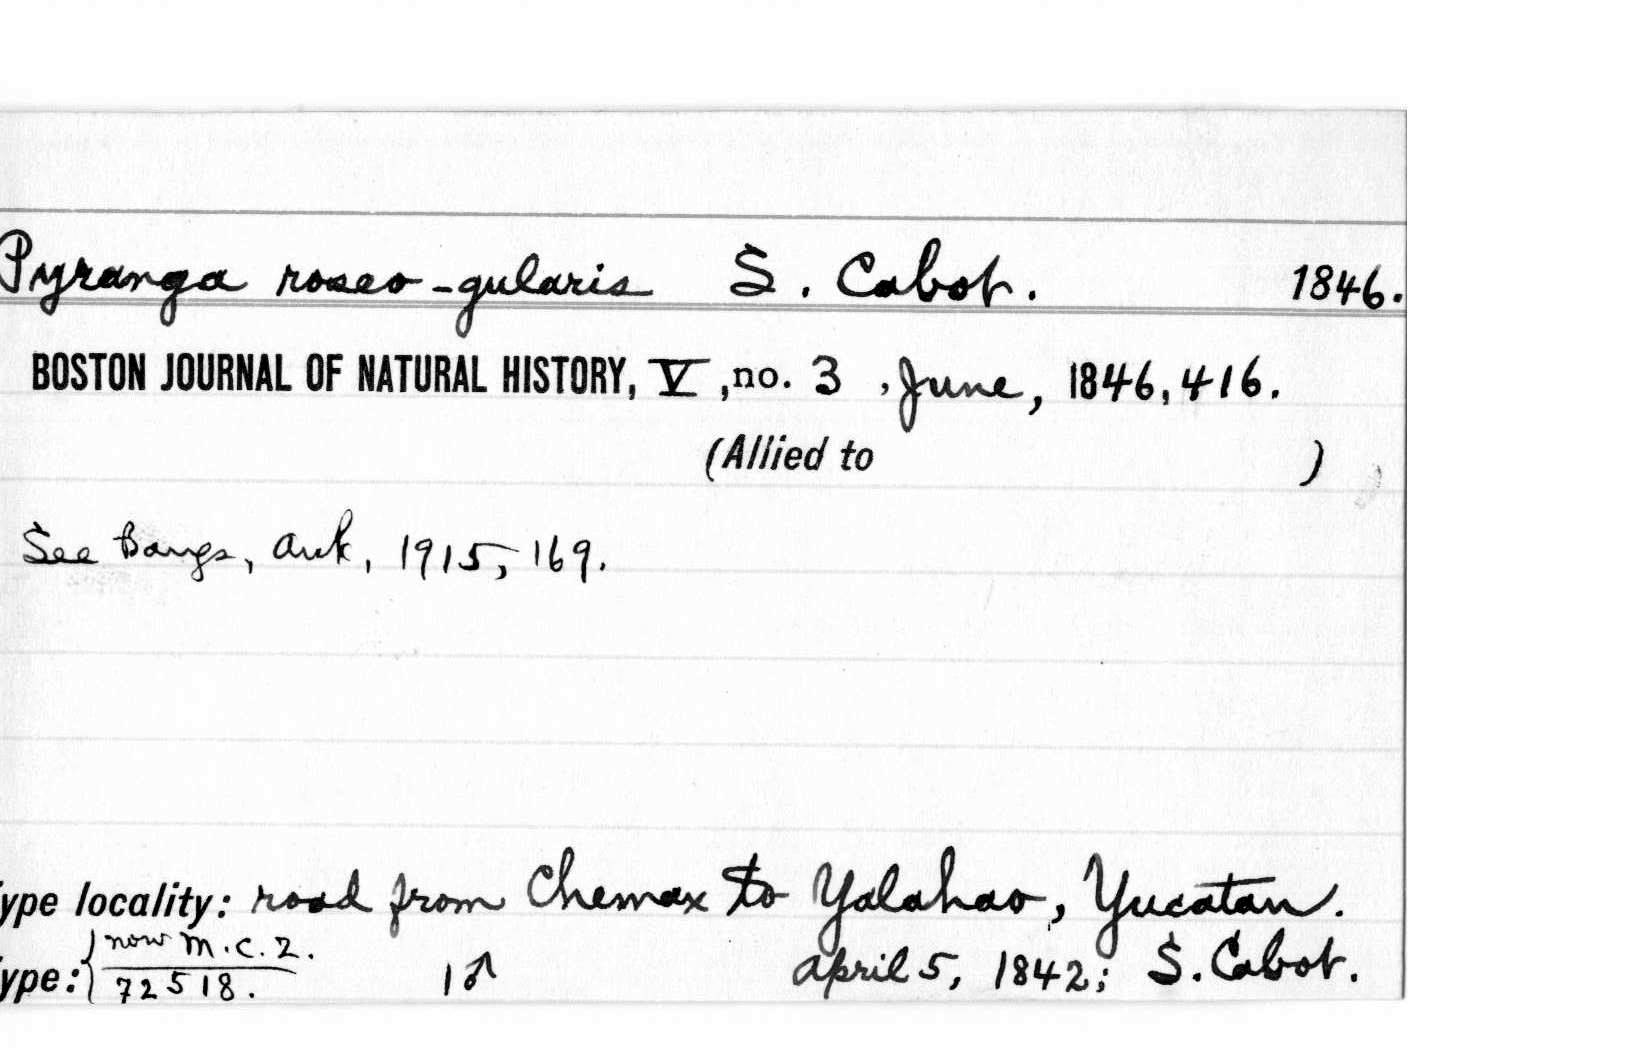 Pyranga roseo-gularis S. Cabot. 1846.
BOSTON JOURNAL OF NATURAL HISTORY, V, no. 3, June, 1846, 416.
(Allied to )
See Bangs, Auk, 1915, 169.
ype locality: road from Chemax to Yalahao, Yucatan.
now M.C.Z.
ype: 72518. 1♂ April 5, 1842; S. Cabot.